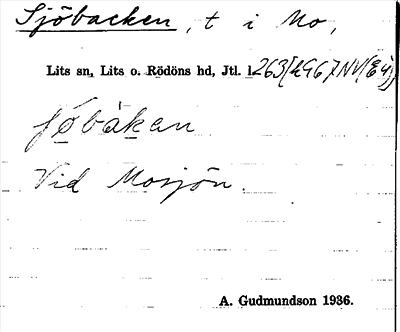 Sjöbacken, t i Mo,
Lits sn, Lits o. Rödöns hd, Jtl. l.
jøbákan
Vid Mosjön.
A. Gudmundson 1936.